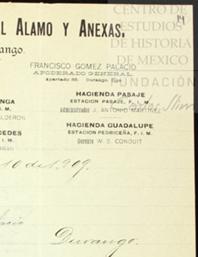 L ALAMO Y ANEXAS,
ango.
CENTRO DE
ESTUDIOS
DE HISTORIA
DE MEXICO
FUNDACIÓN
FRANCISCO GOMEZ PALACIO
APODERADO GENERAL
Apartado 88. Durango, Dgo.
NGA
HACIENDA PASAJE
ESTACION PASAJE, F. I. M.
ALDERON
Administrador J. ANTONIO
CEDES
HACIENDA GUADALUPE
M.
ESTACION PEDRICEÑA, F. I. M.
Gerente W. S. CONDUIT
10 de 1909.
lacio
Durango.